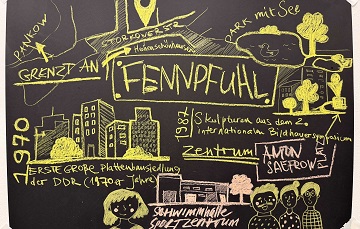 STORKOWER STR
PARK mit SEE
PANKOW
Hohenschönhausen
GRENZT AN
FENNPFUHL
1970
Skulpturen aus dem 2.
internationalen Bildhauersymposium
zentrum
ANTON
SAEFKOW
ERSTE GROßE Plattenhaussiedlung
der DDR (1970er Jahre)
Schwimmhalle
SPORTZENTRUM